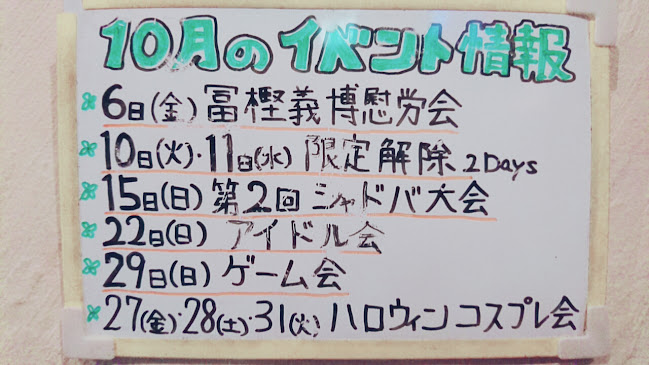 10月のイベント情報
6日(金) 冨樫義博慰労会
10日(火)・11日(水) 限定解除 2Days
15日(日) 第2回 シャドバ大会
22日(日) アイドル会
29日(日) ゲーム会
27(金)・28(土)・31(火) ハロウィンコスプレ会